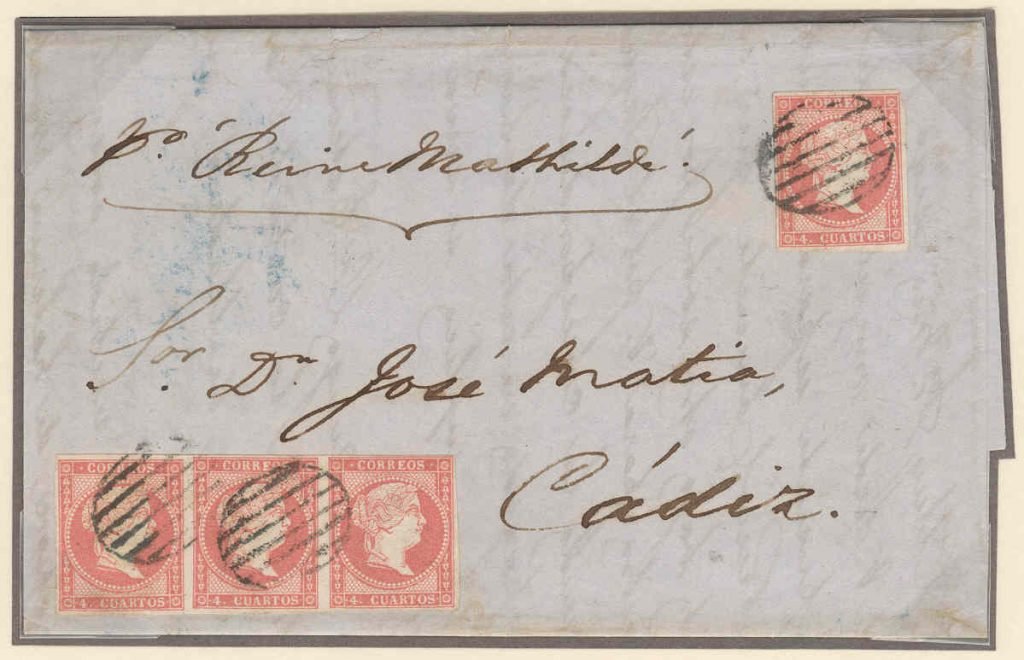 CORREOS
4. CUARTOS
pr. Reine Mathilde.
Sor. Dn José Matia,
Cádiz.
CORREOS CORREOS CORREOS
4. CUARTOS 4. CUARTOS 4. CUARTOS